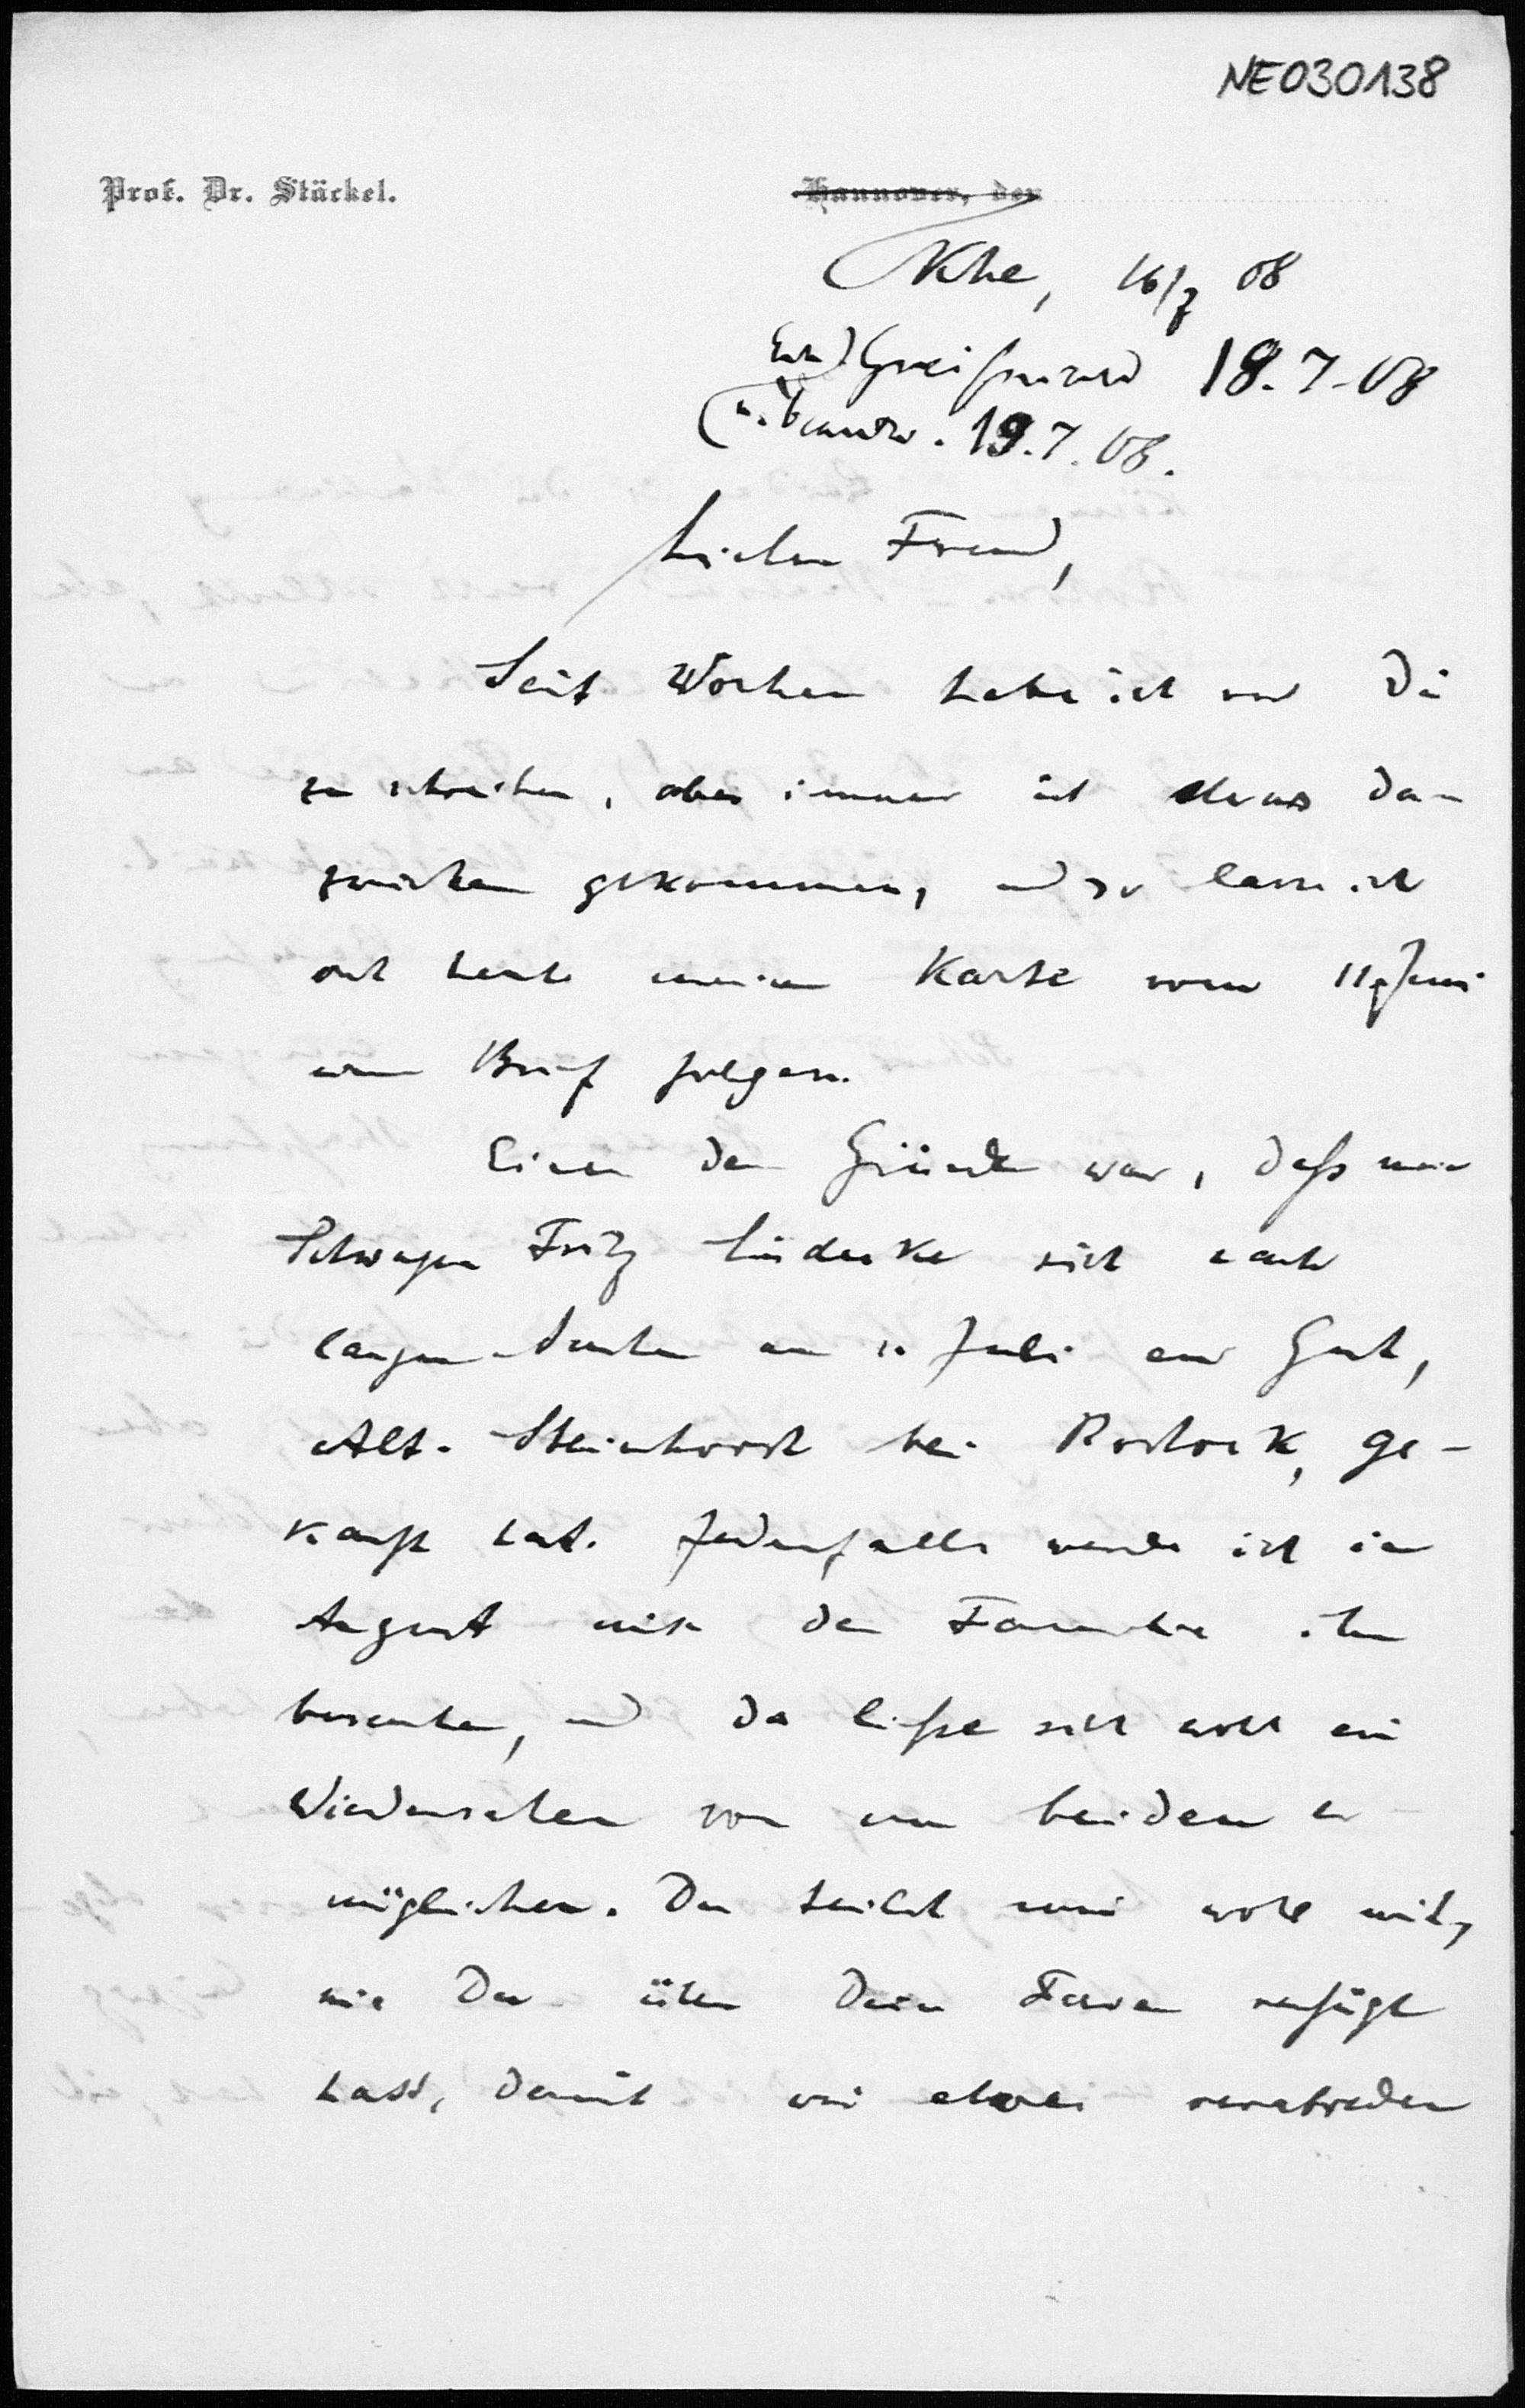 NE030138
Prof. Dr. Stäckel.
Hannover, den
Khe, 16/7 08
Erh. Greifswald 18.7.08
u. beantw. 19.7.08.
Lieber Freund,
Seit Wochen habe ich vor Dir
zu schreiben, aber immer ist etwas da-
zwischen gekommen, und so lasse ich
erst heute meiner Karte vom 11 Juni
einen Brief folgen.
Einer der Gründe war, daß mein
Schwager Fritz Lüderke sich nach
langem Suchen am 1. Juli ein Gut,
Alt-Steinhorst bei Rostock, ge-
kauft hat. Jedenfalls werde ich im
August mit der Familie ihn
besuchen, und da ließe sich wohl ein
Wiedersehen von uns beiden er-
möglichen. Du teilst mir wohl mit,
wie Du über Deine Ferien verfügt
hast, damit wir etwas verabreden